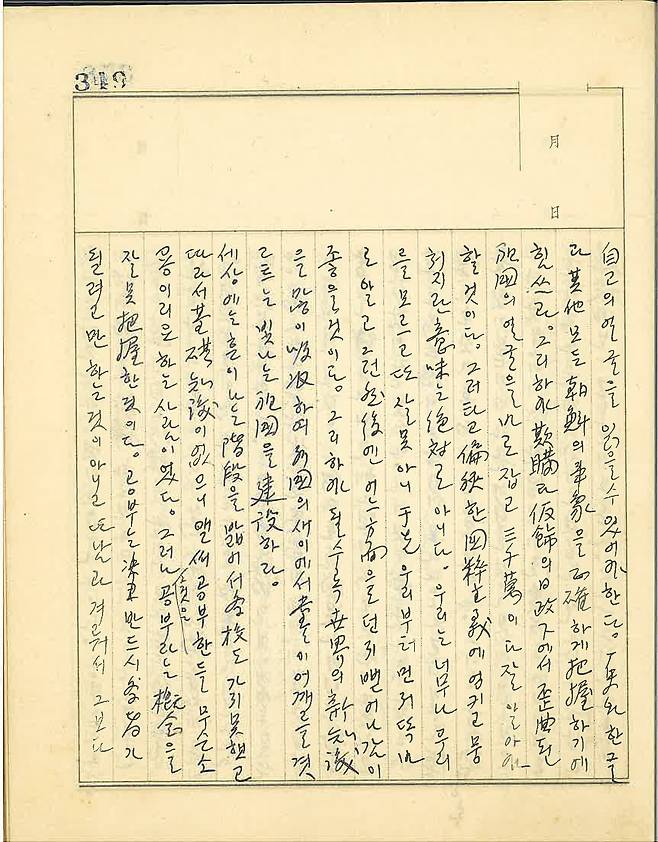 349
月
日
自己의 얼굴을 읽을 수 있어야 한다. 한글
과 其他 모든 朝鮮의 事象을 正確하게 把握하기에
힘쓰라. 그리하야 欺瞞과 仮飾의 日政下에서 歪曲된
祖國의 얼굴을 바로 잡고 三千萬이 다 잘 알아야
할 것이다. 그렇다고 偏狹한 國粹主義에 엉키고 뭉
취지란 意味는 絶対로 아니다. 우리는 너무나 우리
를 모르고 또 잘못 아니 于先 우리부터 먼저 똑바
로 알고 그런 然後에 어느 方面으로 던지 뻗어나감이
좋을 것이다. 그리하야 될수록 世界의 新知識
을 많이 吸收하여 外國의 새이에서 억개를 겻
르는 빛나는 祖國을 建設하라.
세상에는 흔이 나는 階段을 밟어서 學校도 가지 못했고
따라서 基礎知識이 없으니 앨써 공부한들 무슨 소
용이리요 하는 사람이 있다. 그러나 그것은 공부라는 槪念을
잘못 把握한 것이다. 공부는 決코 반드시 學者가
될려고만 하는 것이 아니고 또 남과 겨눠서 그보다